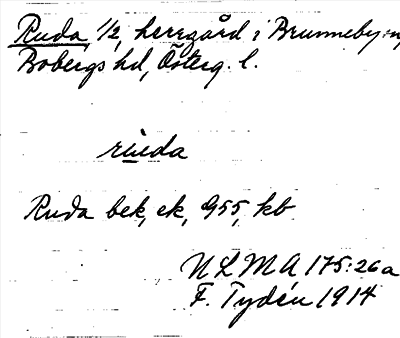 Ruda, 1/2, herregård i Brunneby sn,
Bobergs hd, Österg. l.
ruda
Ruda bek, ek, G55, kb
NLMA 175:26a
F. Tydén 1914